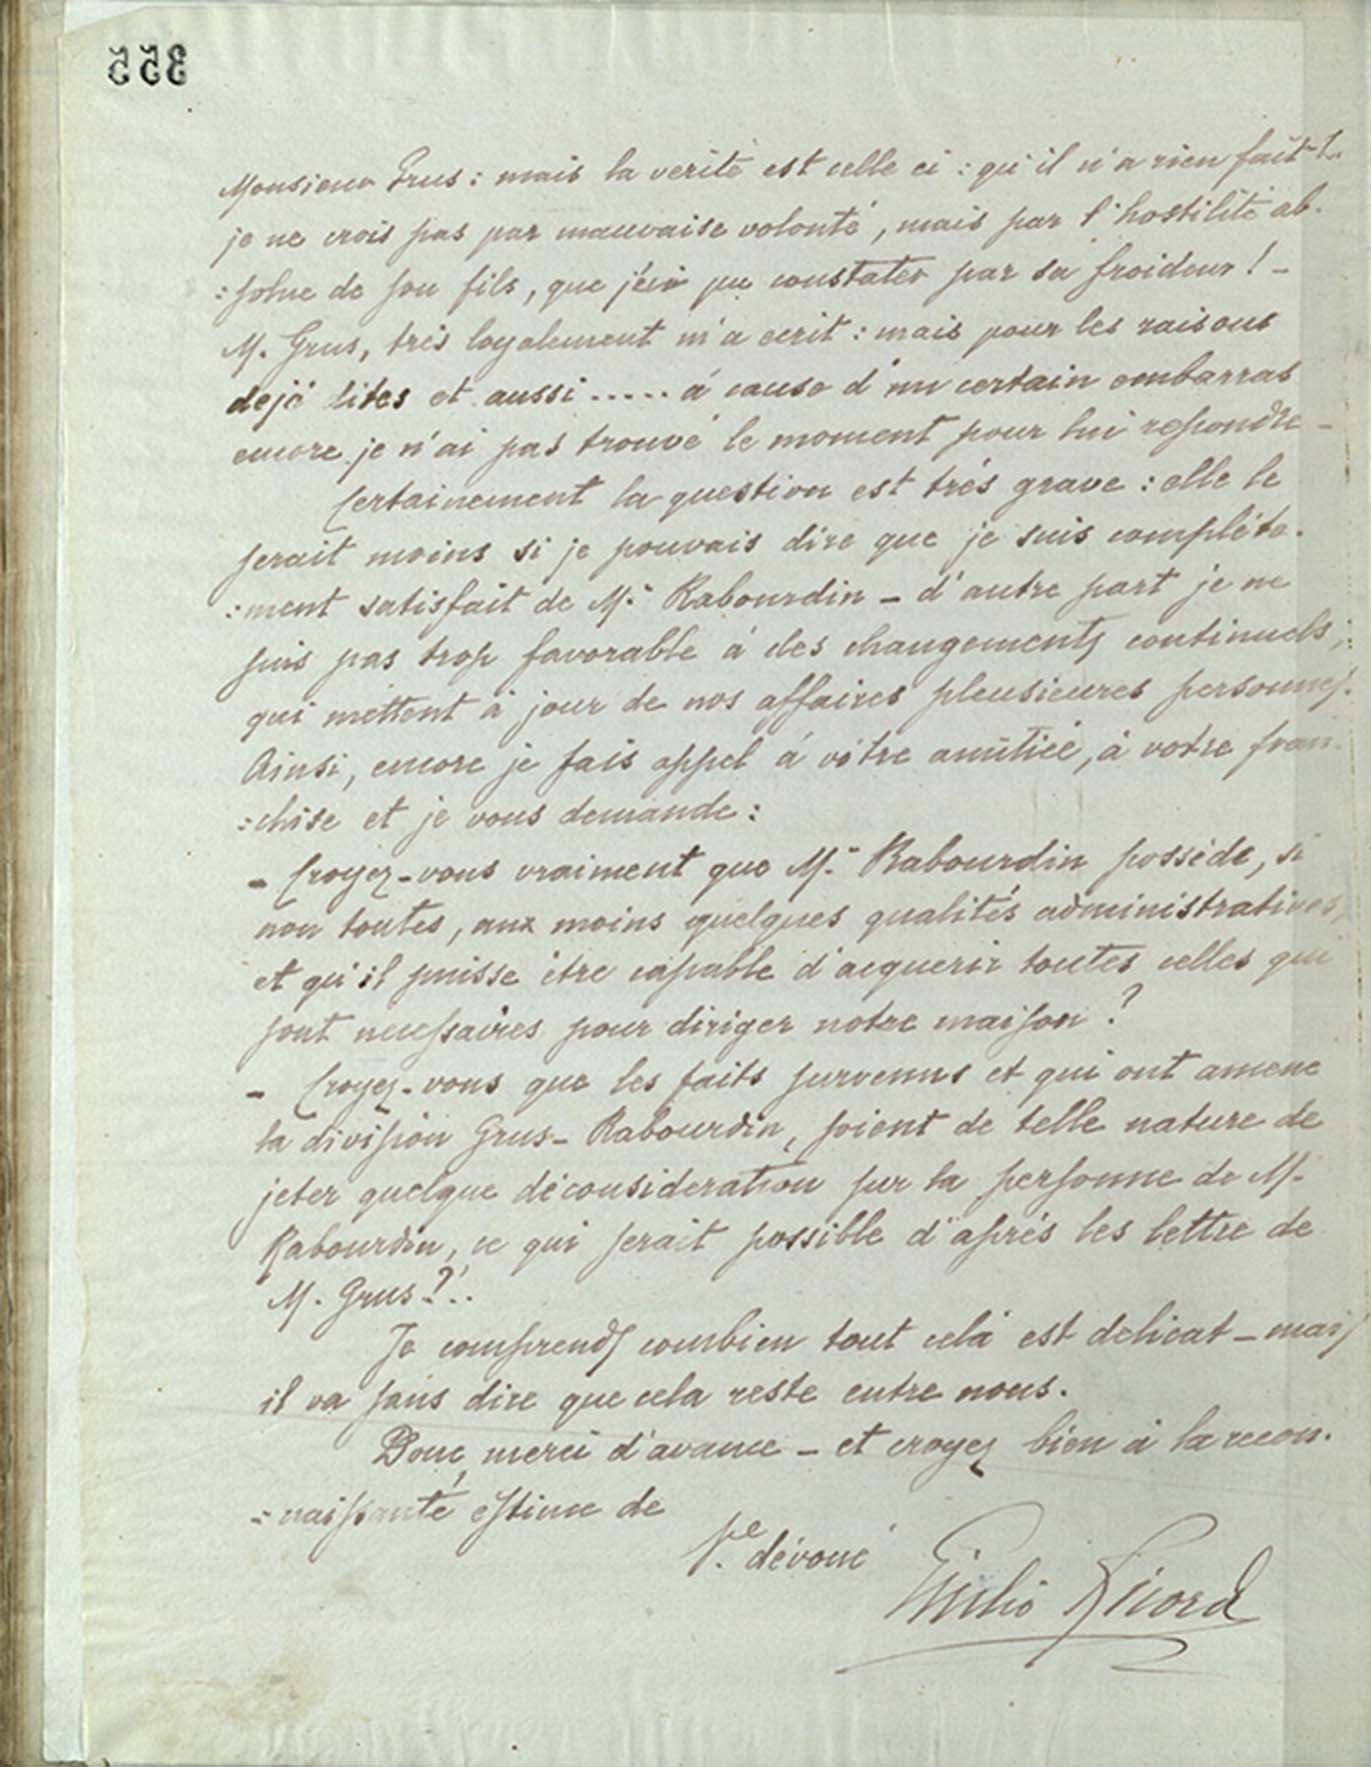 355
Monsieur Grus : mais la verité est celle ci : qu'il n'a rien fait!..
je ne crois pas par mauvaise volonté, mais par l'hostilité ab-
:solue de son fils, que j'ai pu constater par sa froideur! -
M. Grus, très loyalement m'a ecrit : mais pour les raisons
dejà dites et aussi ..... à cause d'un certain embarras
encore je n'ai pas trouvé le moment pour lui repondre -
Certainement la question est très grave : elle le
serait moins si je pouvais dire que je suis complète-
:ment satisfait de M.r Rabourdin - d'autre part je ne
suis pas trop favorable à des changements continuels,
qui mettent à jour de nos affaires pleusieures personnes.
Ainsi, encore je fais appel à vôtre amitiée, à votre fran-
:chise et je vous demande :
- Croyez-vous vraiment que M.r Rabourdin possède, si
non toutes, aux moins quelques qualités administratives,
et qu'il puisse être capable d'acquerir toutes celles qui
sont necessaires pour diriger notre maison?
- Croyez-vous que les faits survenus et qui ont amene
la division Grus - Rabourdin, soient de telle nature de
jeter quelque déconsideration sur la personne de M.
Rabourdin, ce qui serait possible d'après les lettre de
M. Grus?!..
Je comprends combien tout celà est delicat - mais
il va sans dire que cela reste entre nous.
Donc, merci d'avance - et croyez bien à la recon-
:naissante estime de
V.re dévoué
Giulio Ricordi